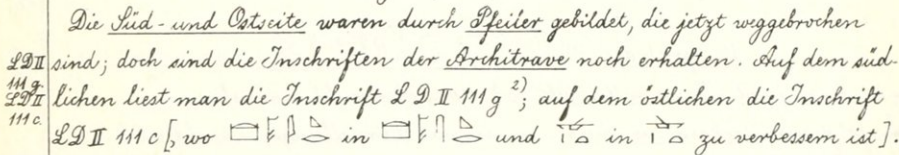 Die Süd- und Ostseite waren durch Pfeiler gebildet, die jetzt weggebrochen
LD II sind; doch sind die Inschriften der Architrave noch erhalten. Auf dem süd-
111 g.
LD II lichen liest man die Inschrift L D II 111 g 2); auf dem östlichen die Inschrift
111 c.
LD II 111 c [, wo in und in zu verbessern ist].